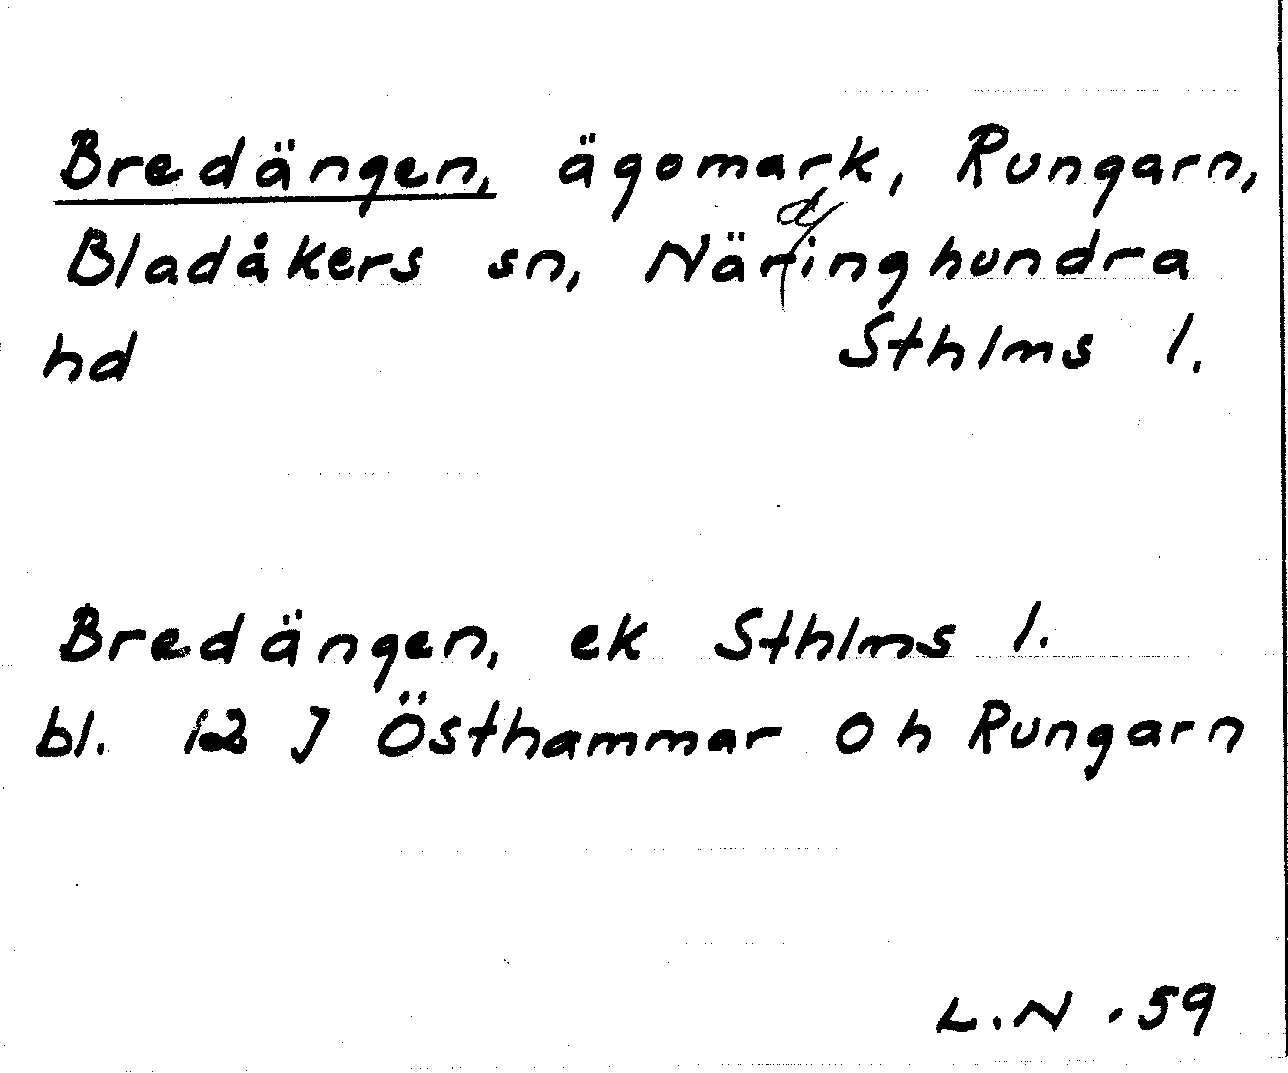 Bredängen, ägomark, Rungarn,
Bladåkers sn, Närdinghundra
hd Sthlms l.
Bredängen, ek Sthlms l.
bl. 12 J Östhammar Oh Rungarn
L.N. -59